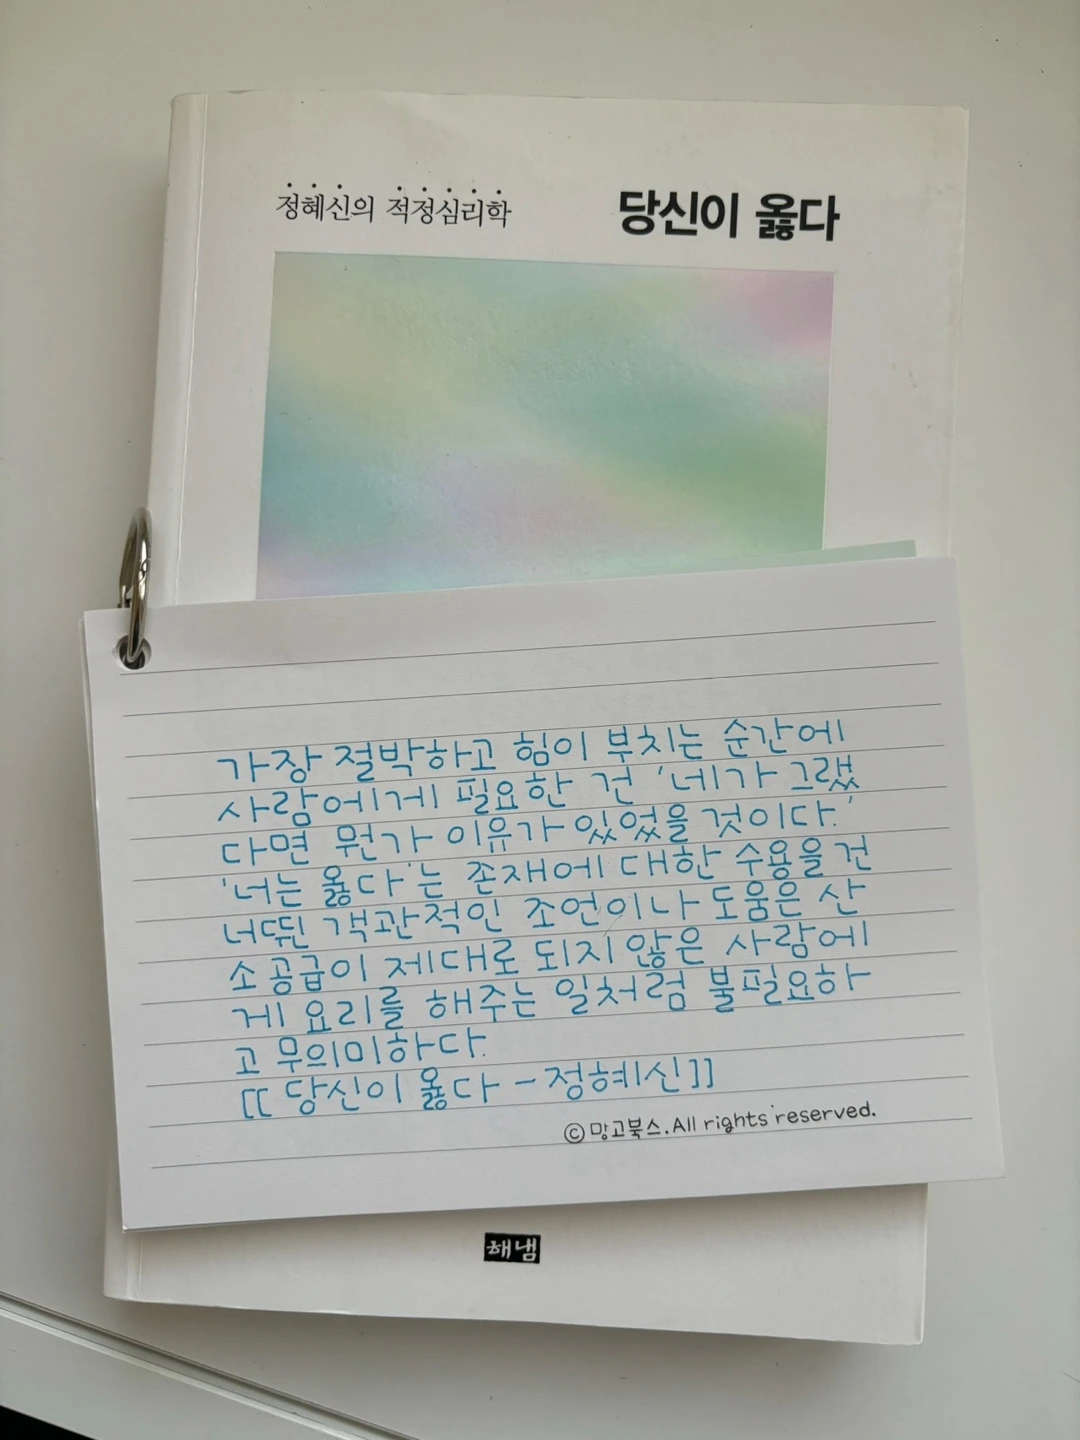 정혜신의 적정심리학
당신이 옳다
가장 절박하고 힘이 부치는 순간에
사람에게 필요한 건 '네가 그랬
다면 뭔가 이유가 있었을 것이다.'
'너는 옳다'는 존재에 대한 수용을 건
너뛴 객관적인 조언이나 도움은 산
소 공급이 제대로 되지 않은 사람에
게 요리를 해주는 일처럼 불필요하
고 무의미하다.
[[ 당신이 옳다 - 정혜신]]
ⓒ 망고북스. All rights reserved.
해냄